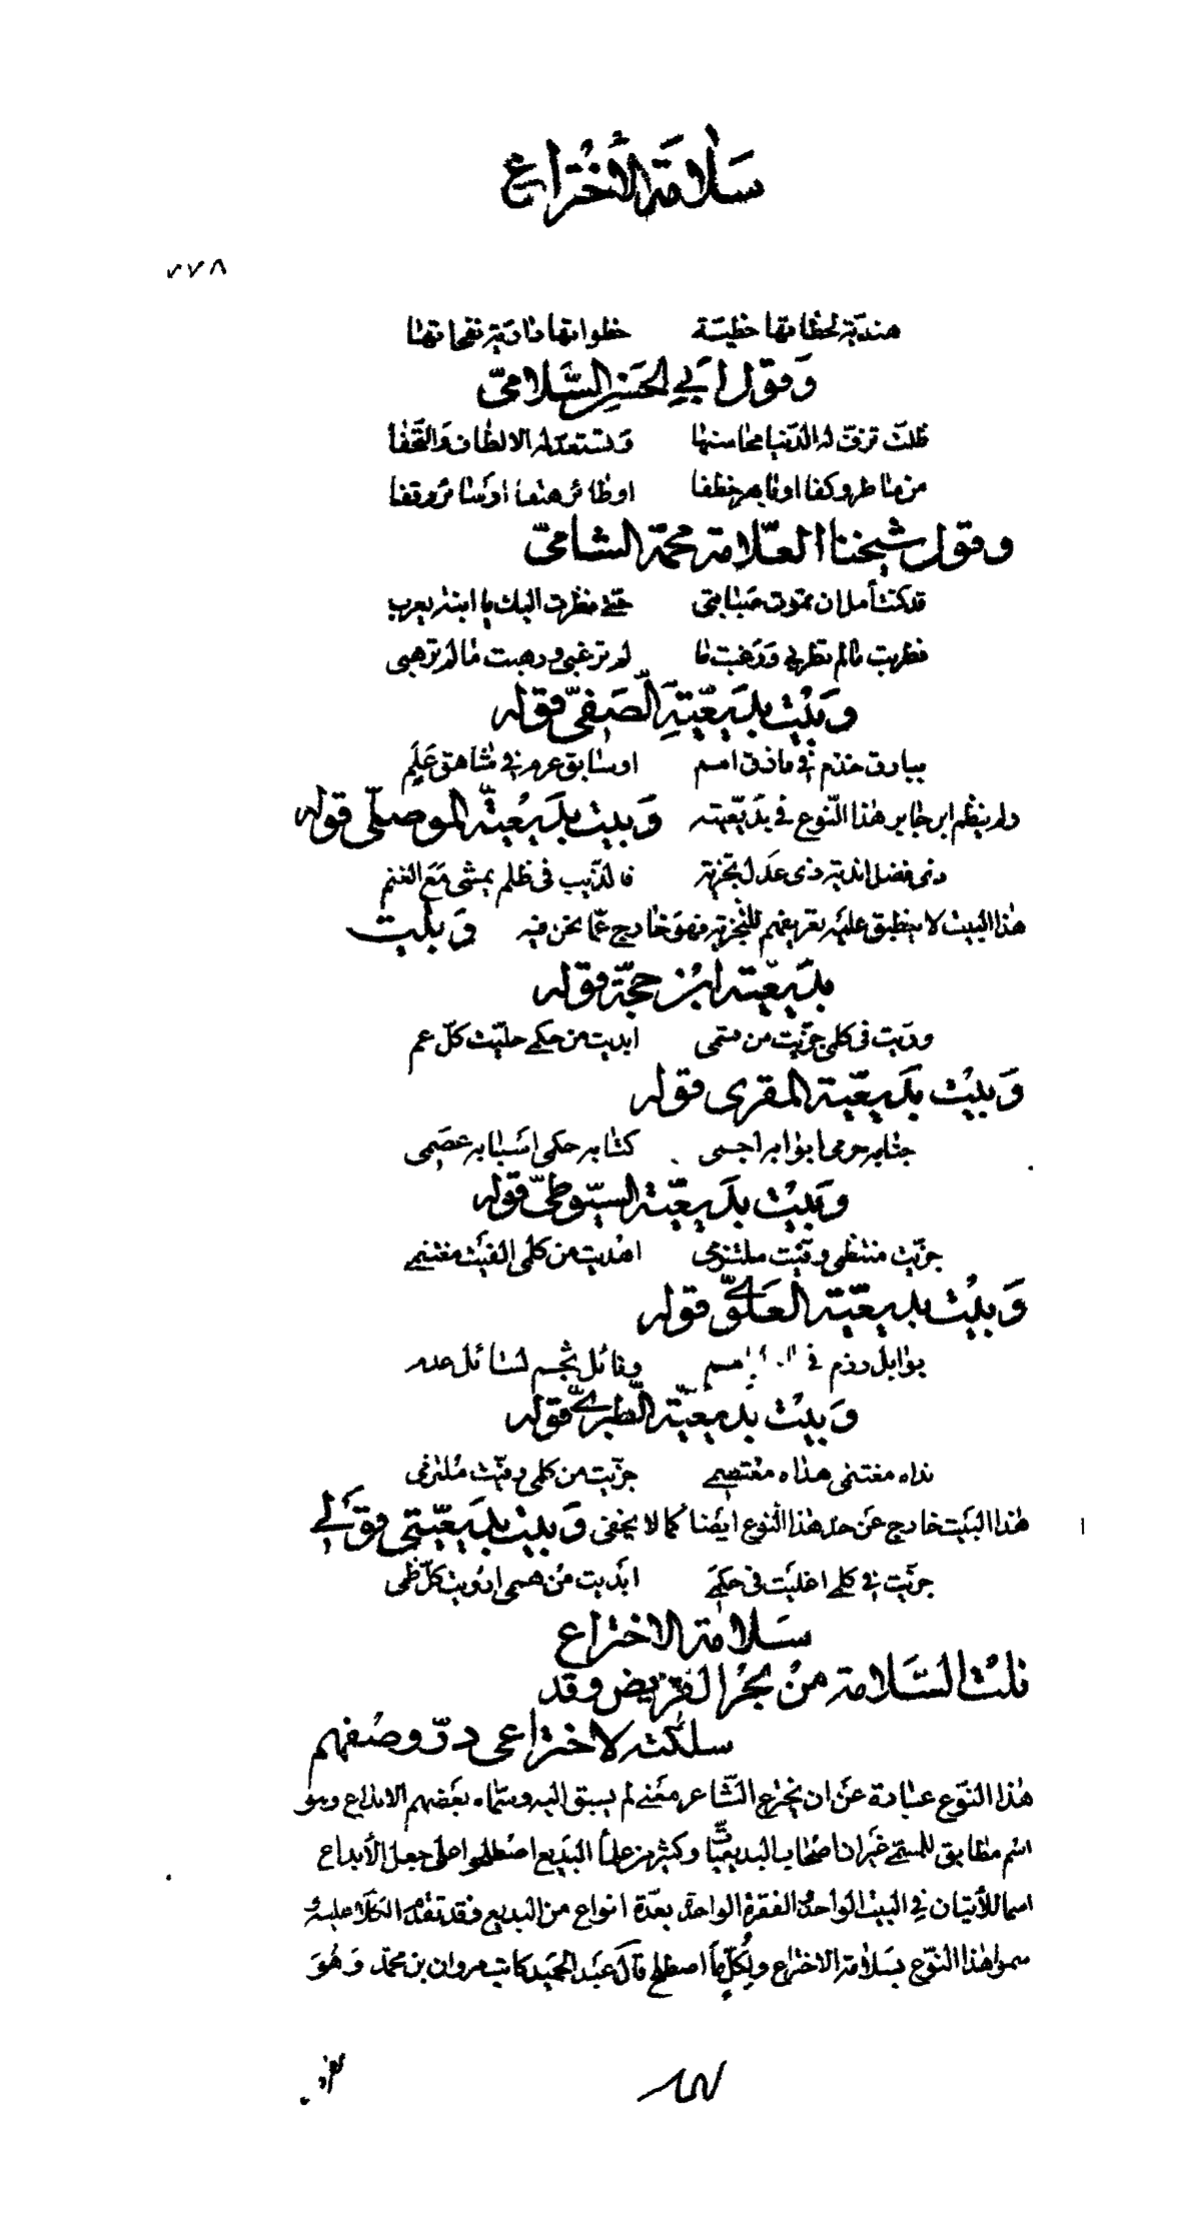 سلامة الاختراع
٧٧٨
هنديّة لحظاتها خطيّة خطواتها داريّة نفحاتها
وقول ابي الحسن السّلاميّ
ظلّت تزفّ له الدّنيا محاسنها وتستعدّ له الالطاف والتّحفا
من ماطر وكفا او بارق خطفا او طائر هتفا او سائر وقفا
وقول شيخنا العلّامة محمّد الشاميّ
قد كنت أمل ان تموت صبابتي حتى نظرت اليك يا ابنة يعرب
فطربت ما لم تطربي ورغبت ما لم ترغبي ورهبت ما لم ترهبي
وبيت بديعيّة الصّفيّ قوله
ببارق خذم في مأزق امم او سابق عرم في شاهق علم
ولم ينظم ابن جابر هذا النّوع في بديعيّته وبيت بديعيّة الموصلّي قوله
ذي فضل اندية ذي عدل تجزية فالذّيب في ظلم يمشي مع الغنم
هذا البيت لا ينطبق عليه تعريفهم للتجزية فهو خارج عمّا نحن فيه وبيت
بديعيّة ابن حجّة قوله
وريت في كلمي جزّيت من قسمي ابديت من حكمي جلّيت كلّ عم
وبيت بديعيّة المقري قوله
جنابه حرمي ابوابه اجمي كتابه حكمي اسبابه عصمي
وبيت بديعيّة السيّوطيّ قوله
جزّيت منتظمي وفّيت ملتزمي اهديت من كلمي الفيت مغتنم
وبيت بديعيّة العلويّ قوله
بوابل رذم في ونائل شجم لسائل عدم
وبيت بديعيّة الطبريّ قوله
نداه مغتنمي هداه معتصمي جزّيت من كلمي وفيّت ملتزمي
هذا البيت خارج عن حدّ هذا النوع ايضا كما لا يخفى وبيت بديعيّتي قولي
جزّيت في كلمي اغليت في حكمي ابديت من هممي ارويت كلّ ظمي
سلامة الاختراع
نلت السّلامة من بحر القريض وقد
سلكته لاختراعي درّ وصفهم
هذا النّوع عبارة عن ان يخترع الشّاعر معنى لم يسبق اليه وسمّاه بعضهم الابداع وهو
اسم مطابق للمسمّى غير ان اصحاب البديعيّات وكثير من علماء البديع اصطلحوا على جعل الأبداع
اسما للأتيان في البيت الواحد والفقرة الواحدة بعدّة انواع من البديع فقد تقدّم الكلام عليه و
سموا هذا النّوع بسلامة الاختراع ولكلّ ما اصطلح قال عبد الحميد كاتب مروان بن محمّد وهو